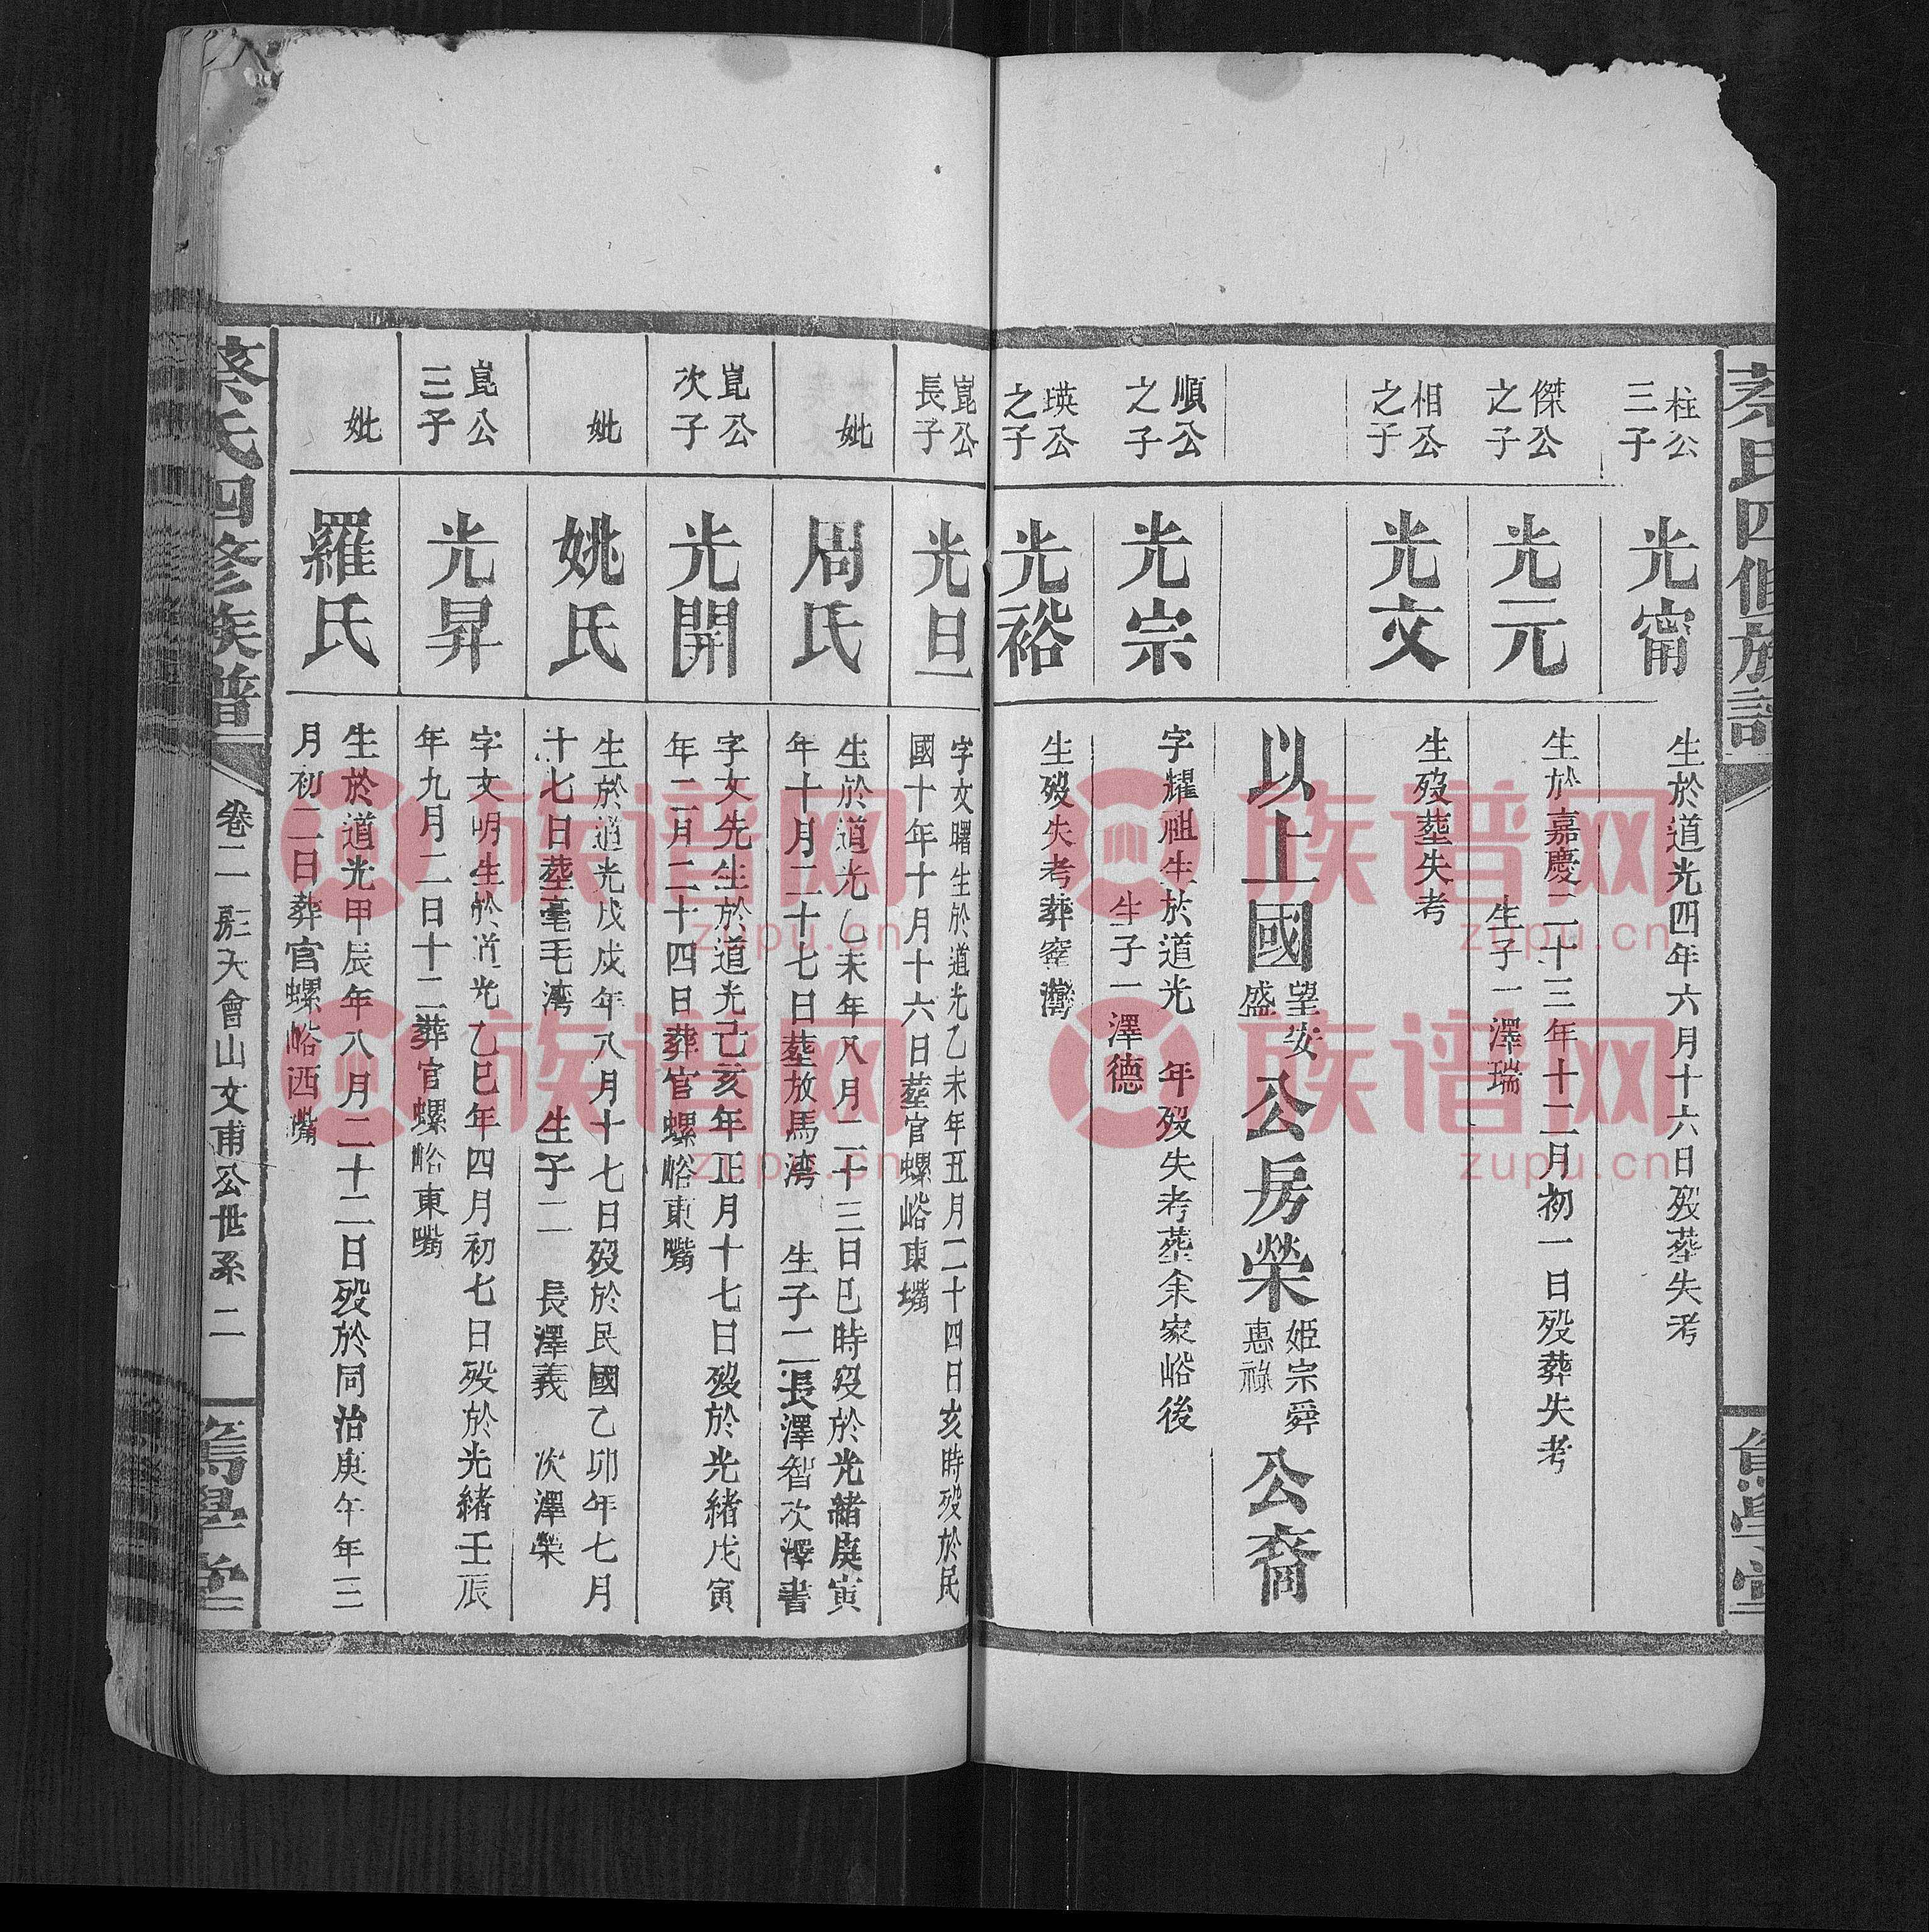 蔡氏四修族譜
篤學堂
柱公
三子
光甯
生於道光四年六月十六日歿葬失考
傑公
之子
光元
生於嘉慶二十三年十二月初一日歿葬失考
生子一澤瑞
相公
之子
光文
生歿葬失考
以上國
望安
盛
公房榮
姫宗舜
惠祿
公裔
順公
之子
光宗
字耀祖生於道光 年歿失考葬余家峪後
生子一澤德
瑛公
之子
光裕
生歿失考葬窑灣
崑公
長子
光旦
字文曙生於道光乙未年五月二十四日亥時歿於民
國十年十月十六日葬官螺峪東嘴
妣
周氏
生於道光乙未年八月二十三日巳時歿於光緒庚寅
年十月二十七日葬放馬湾 生子二長澤智次澤書
崑公
次子
光開
字文先生於道光己亥年正月十七日歿於光緒戊寅
年二月二十四日葬官螺峪東嘴
妣
姚氏
生於道光戊戌年八月十七日歿於民國乙卯年七月
十七日葬毫毛湾 生子二 長澤義 次澤榮
崑公
三子
光昇
字文明生於道光乙巳年四月初七日歿於光緒壬辰
年九月二日十二葬官螺峪東嘴
妣
羅氏
生於道光甲辰年八月二十二日歿於同治庚午年三
月初二日葬官螺峪西嘴
蔡氏四修族譜
卷二 大會山文甫公世系 二
篤學堂
族谱网
zupu.cn
族谱网
zupu.cn
族谱网
zupu.cn
族谱网
zupu.cn